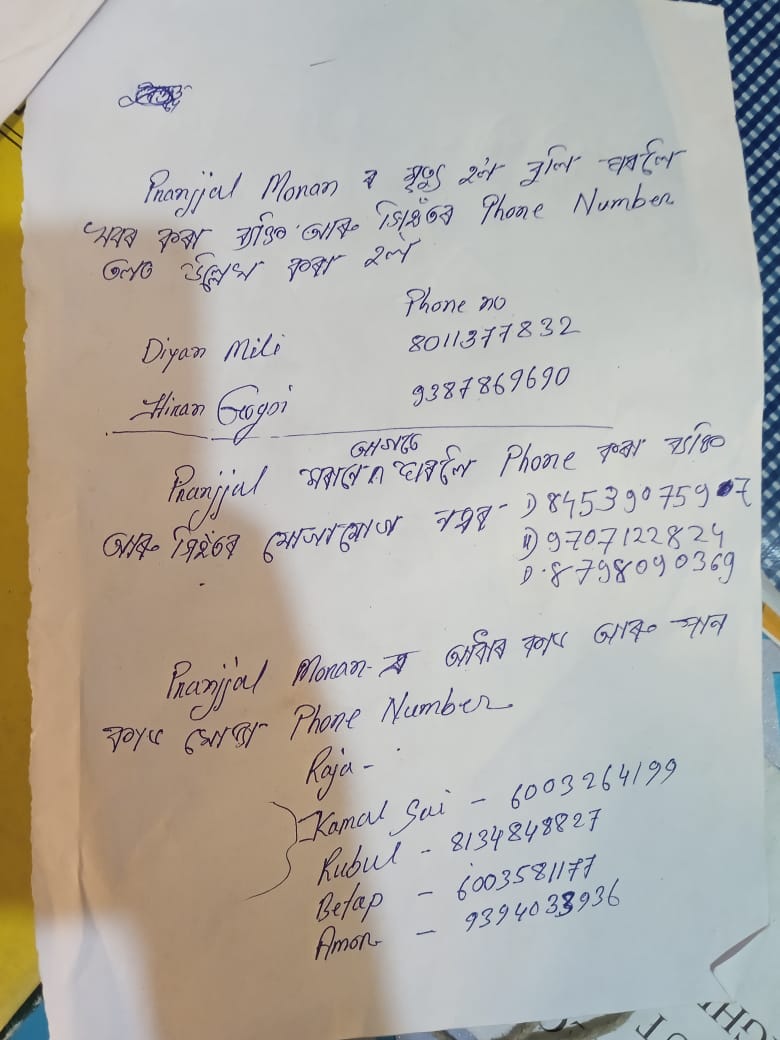 Pranjjal Moran ৰ মৃত্যু হ'ল বুলি ঘৰলৈ
খবৰ কৰা ব্যক্তি আৰু সিহঁতৰ Phone Number
তলত উল্লেখ কৰা হ'ল
Phone no
Diyan Mili 8011377832
Hiran Gogoi 9387869690
আগতে
Pranjjal মৰাৰ ঘৰলৈ Phone কৰা ব্যক্তি
আৰু সিহঁতৰ যোগাযোগ নম্বৰ - I) 8453907597
II) 9707122824
I) 8798090369
Pranjjal Moran - ৰ আধাৰ কাৰ্ড আৰু পান
কাৰ্ড যোৱা Phone Number
Raja -
Kamal Sai - 6003264199
Rubul - 8134848827
Betap - 6003581177
Amon - 9394033936